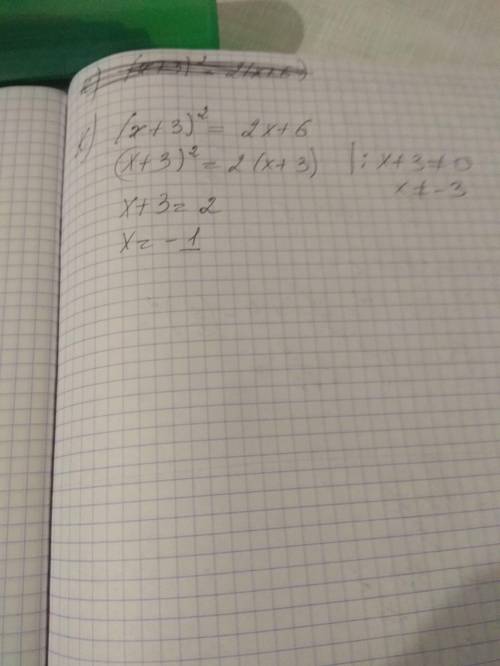 (x+3)² = 2x+6
(x+3)² = 2(x+3) | : x+3≠0
x≠-3
x+3 = 2
x = -1